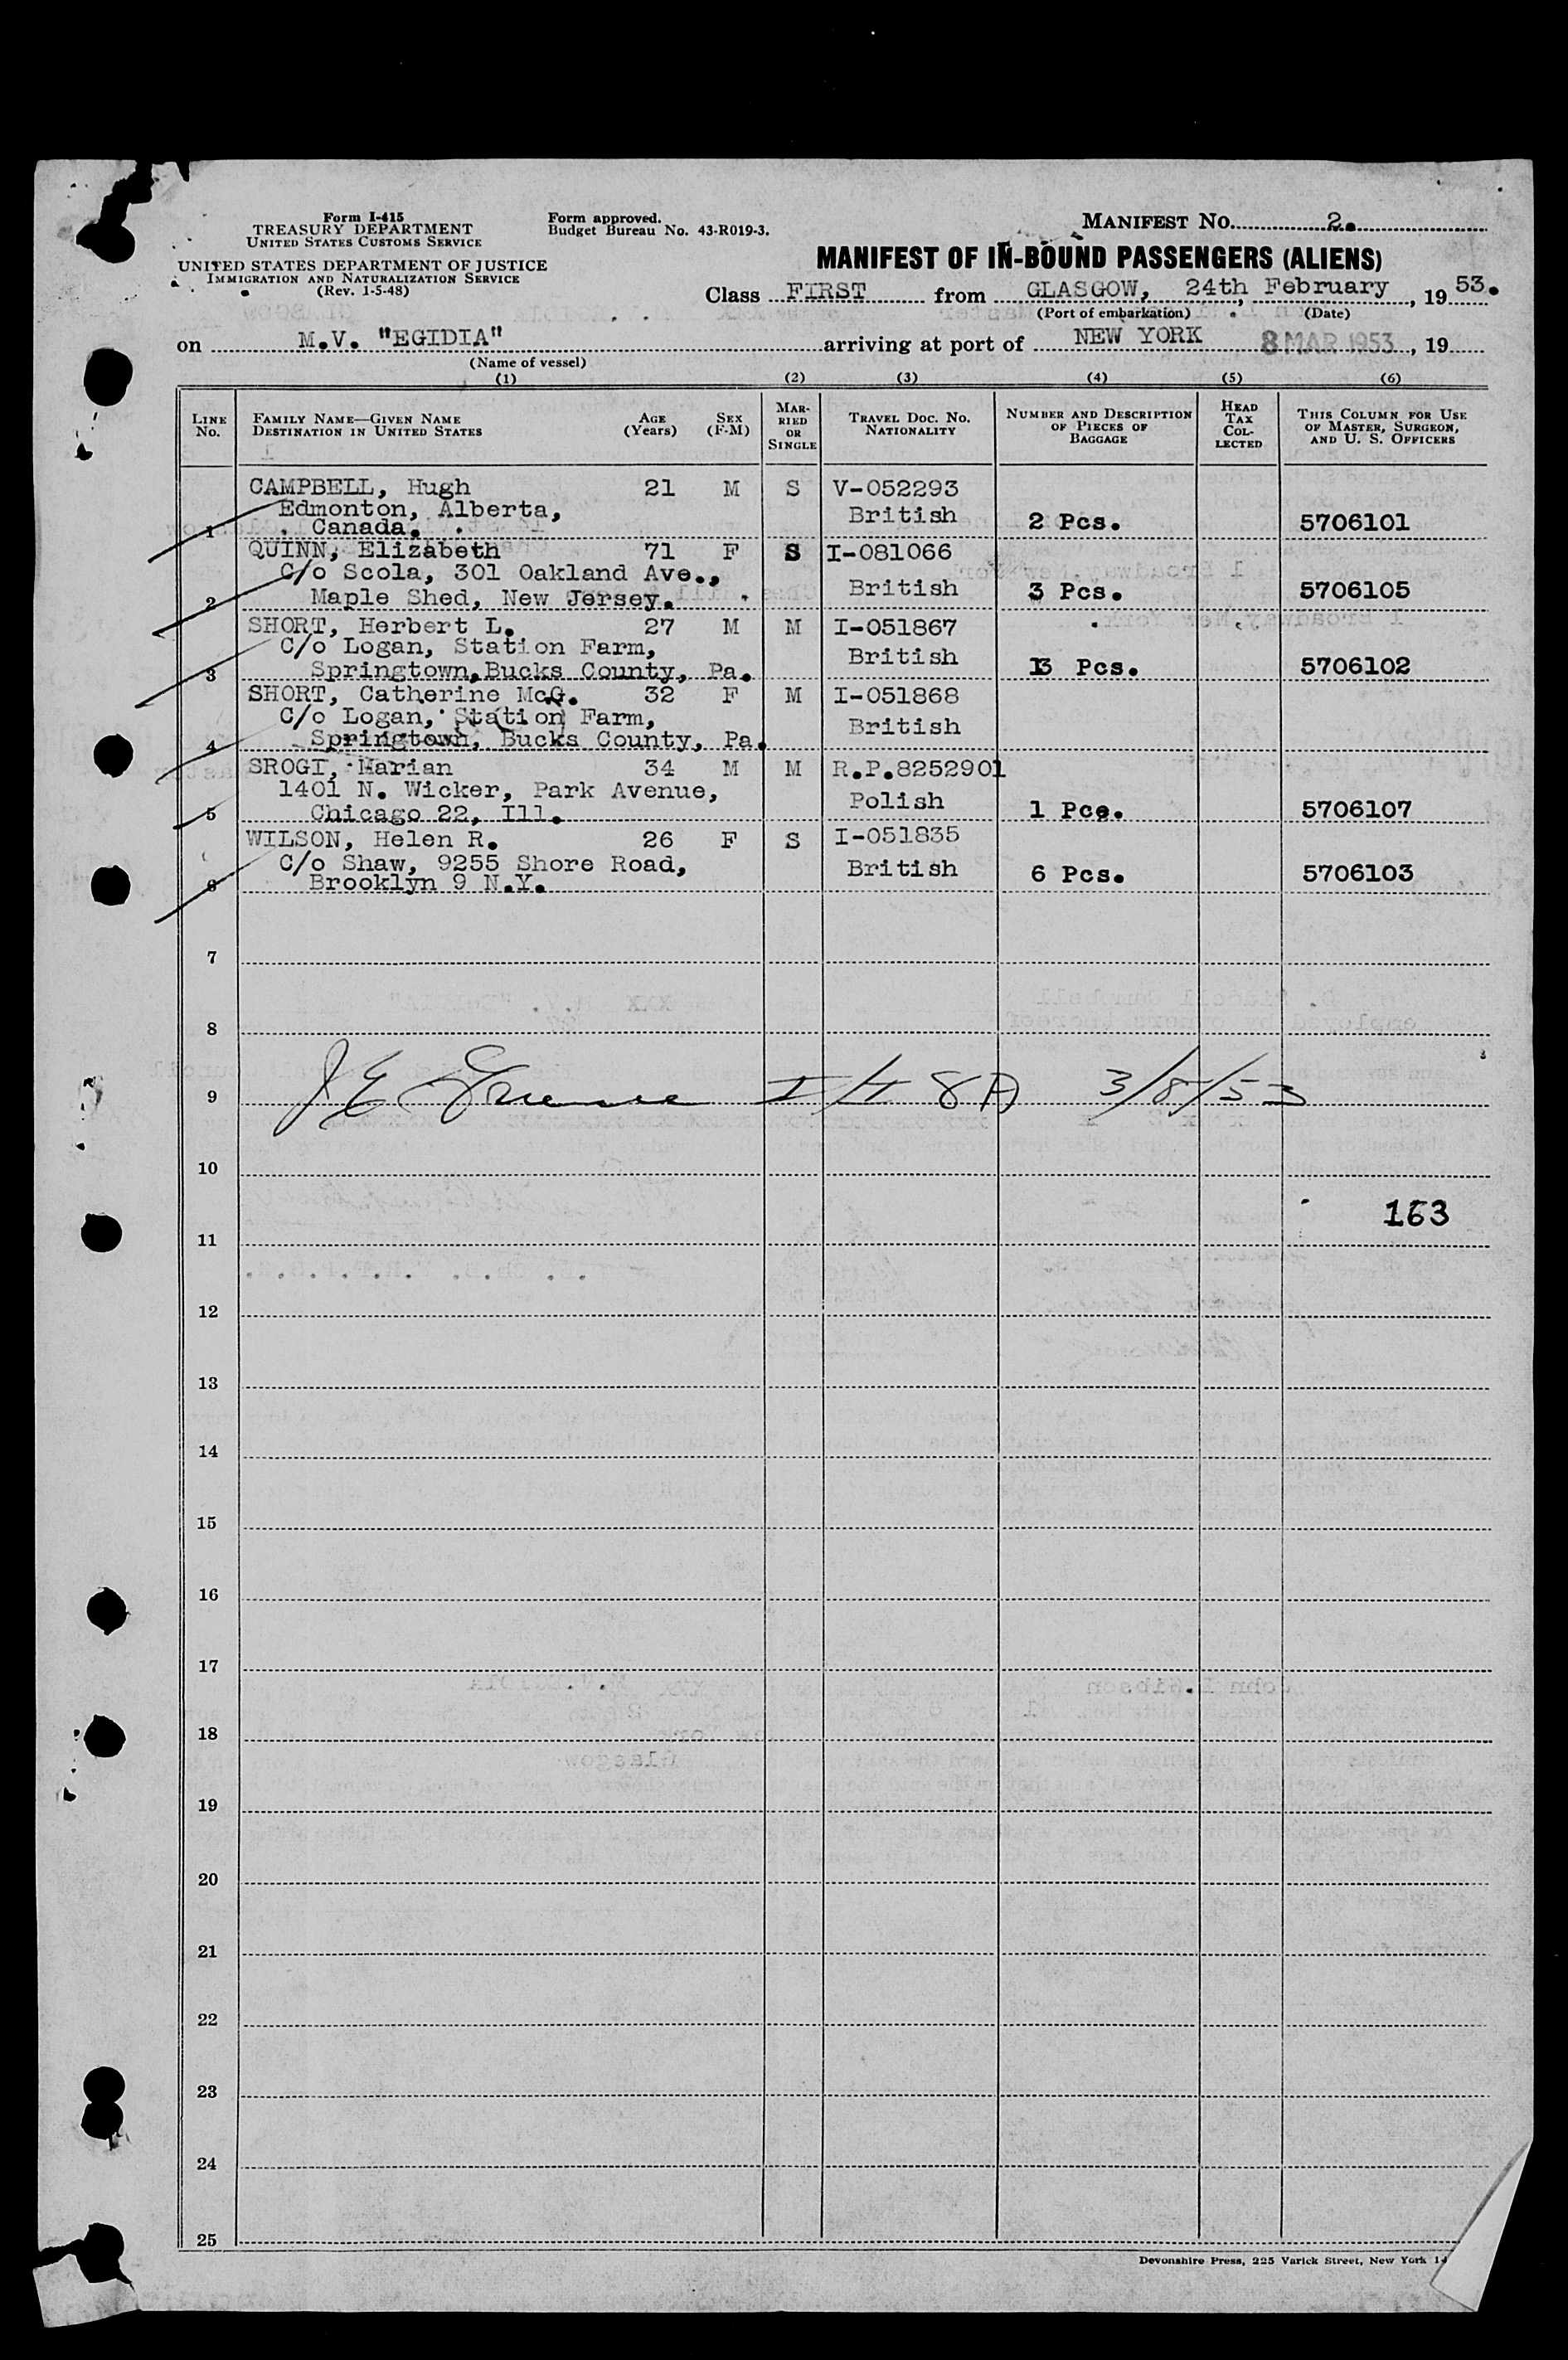 Form I-415
TREASURY DEPARTMENT
UNITED STATES CUSTOMS SERVICE
UNITED STATES DEPARTMENT OF JUSTICE
IMMIGRATION AND NATURALIZATION SERVICE
(Rev. 1-5-48)
Form approved.
Budget Bureau No. 43-R019-3.
MANIFEST NO. 2.
MANIFEST OF IN-BOUND PASSENGERS (ALIENS)
Class FIRST from GLASGOW, 24th, February, 19 53.
(Port of embarkation) (Date)
on M.V. "EGIDIA" arriving at port of NEW YORK 8 MAR 1953, 19
(Name of vessel)
(1) (2) (3) (4) (5) (6)
LINE No. FAMILY NAME—GIVEN NAME DESTINATION IN UNITED STATES AGE (Years) SEX (F-M) MARRIED OR SINGLE TRAVEL DOC. NO. NATIONALITY NUMBER AND DESCRIPTION OF PIECES OF BAGGAGE HEAD TAX COLLECTED THIS COLUMN FOR USE OF MASTER, SURGEON, AND U. S. OFFICERS
CAMPBELL, Hugh 21 M S V-052293
Edmonton, Alberta, British
1 Canada. 2 Pcs. 5706101
QUINN, Elizabeth 71 F S I-081066
C/o Scola, 301 Oakland Ave., British
2 Maple Shed, New Jersey. 3 Pcs. 5706105
SHORT, Herbert L. 27 M M I-051867
C/o Logan, Station Farm, British
3 Springtown, Bucks County, Pa. 13 Pcs. 5706102
SHORT, Catherine McG. 32 F M I-051868
C/o Logan, Station Farm, British
4 Springtown, Bucks County, Pa.
SROGI, Marian 34 M M R.P.8252901
1401 N. Wicker, Park Avenue, Polish
5 Chicago 22, Ill. 1 Pce. 5706107
WILSON, Helen R. 26 F S I-051835
C/o Shaw, 9255 Shore Road, British
6 Brooklyn 9 N.Y. 6 Pcs. 5706103
7
8
9 3/8/53
10
163
11
12
13
14
15
16
17
18
19
20
21
22
23
24
25
Devonshire Press, 225 Varick Street, New York 14